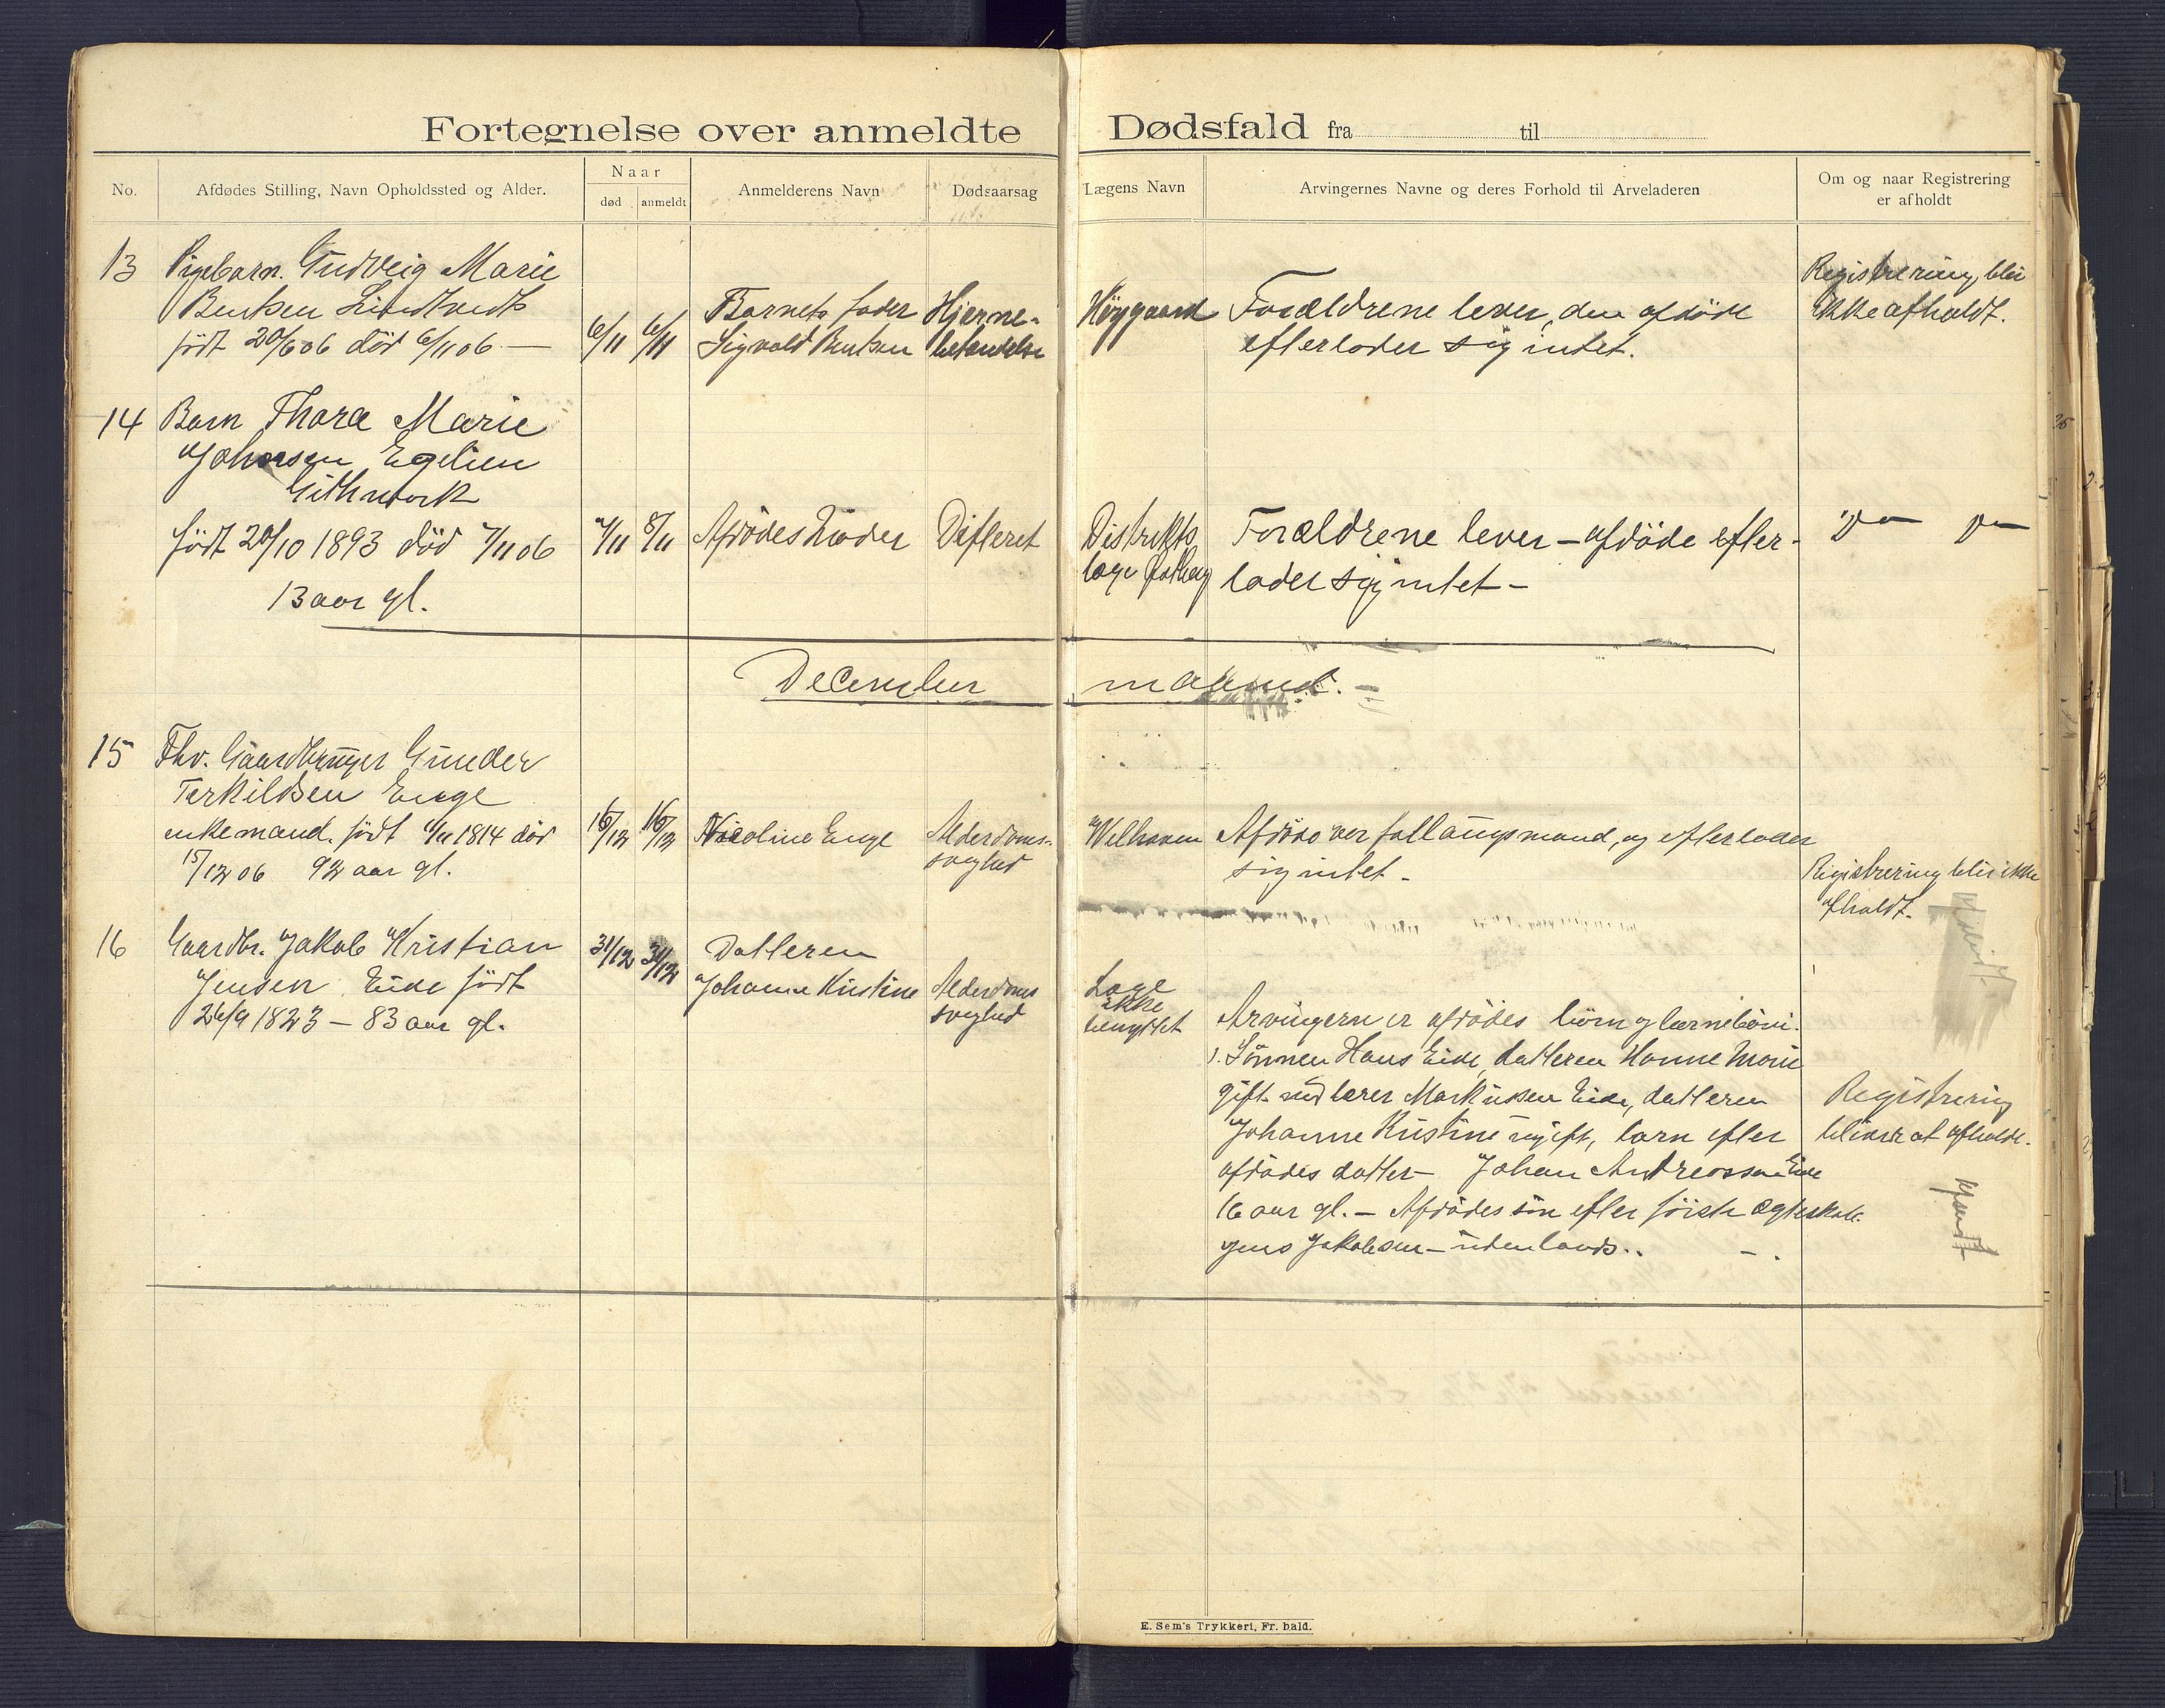 Fortegnelse over anmeldte Dødsfald fra til
No.
Afdødes Stilling, Navn Opholdssted og Alder.
Naar
død
anmeldt
Anmelderens Navn
Dødsaarsag
Lægens Navn
Arvingernes Navne og deres Forhold til Arveladeren
Om og naar Registrering
er afholdt
13
Pigebarn. Gudveig Marie
Bentsen Lindtveit
født 20/6 06 død 6/11 06 —
6/11
6/11
Barnets fader
Sigvald Bentsen
Hjerne-
betendelse
Høygaard
Forældrene lever, den afdøde
efterlader sig intet.
Registrering blir
ikke afholdt.
14
Barn Thora Marie
Johnsen Egelien
født 20/10 1893 død 7/11 06
13 aar gl.
7/11
8/11
Afdødes Moder
Difteret
Distrikts
læge
Forældrene lever — afdøde efter-
lader sig intet —
December maaned. —
15
Fhv. Gaardbruger Gunder
Terkildsen Enge
enkemand. født 1814 død
15/12 06 92 aar gl.
16/12
16/12
Nicoline Enge
Alderdoms-
svaghed
Welhaven
Afdøde var fallaugsmand, og efterlader
sig intet —
Registrering blir ikke
afholdt.
16
Gaardbr. Jakob Kristian
Jensen Eide født
26/9 1823 — 83 aar gl.
31/12
31/12
Datteren
Johanne Kristine
Alderdoms
svaghed
Læge
ikke
benyttet
Arvingerne er afdødes børn og børnebørn.
1. Sønnen Hans Eide, datteren Hanne Marie
gift med lærer Markussen Eide, datteren
Johanne Kristine ugift, barn efter
afdødes datter — Johan Andreassen Eide
16 aar gl. — Afdødes søn efter første ægteskab.
Jens Jakobsen — udenlands..
Registrering
bliver at afholde.
E. Sem's Trykkeri, Fr. hald.